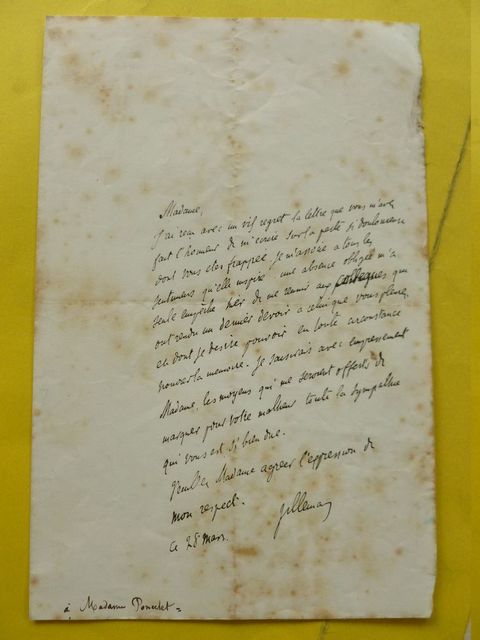 Madame,
J'ai reçu avec un vif regret la lettre que vous m'avez
fait l'honneur de m'écrire sur la perte si douloureuse
dont vous êtes frappée. Je m'associe à tous les
sentimens qu'elle inspire. une absence obligée m'a
seule empêché hier de me réunir aux collegues qui
ont rendu un dernier devoir à celui que vous pleurez,
et dont je desire pouvoir en toute circonstance
honorer la memoire. Je saisirais avec empressement
Madame, les moyens qui me seroient offerts de
marquer pour votre malheur toute la sympathie
qui vous est si bien due.
Veuillez Madame agréer l'expression de
mon respect.
ce 28 mars.
Villemain
à Madame Poncelet =